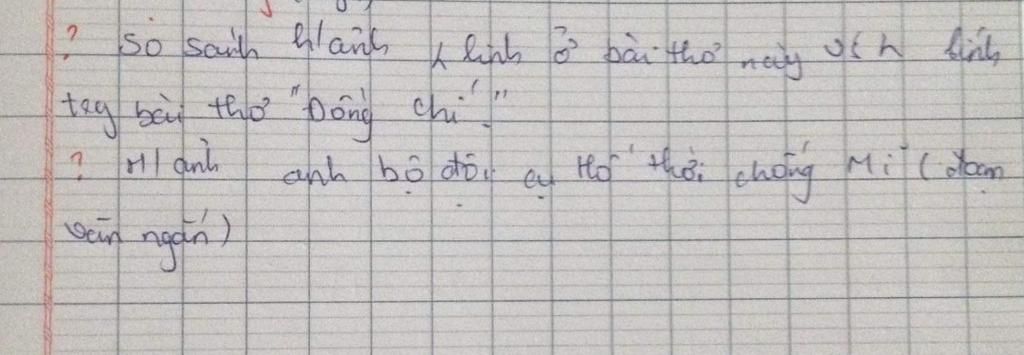 ? So sánh h/ảnh ng lính ở bài thơ này với h lính
trg bài thơ "Đồng chí".
? H/ảnh anh bộ đội cụ Hồ thời chống Mĩ (đoạn
văn ngắn)